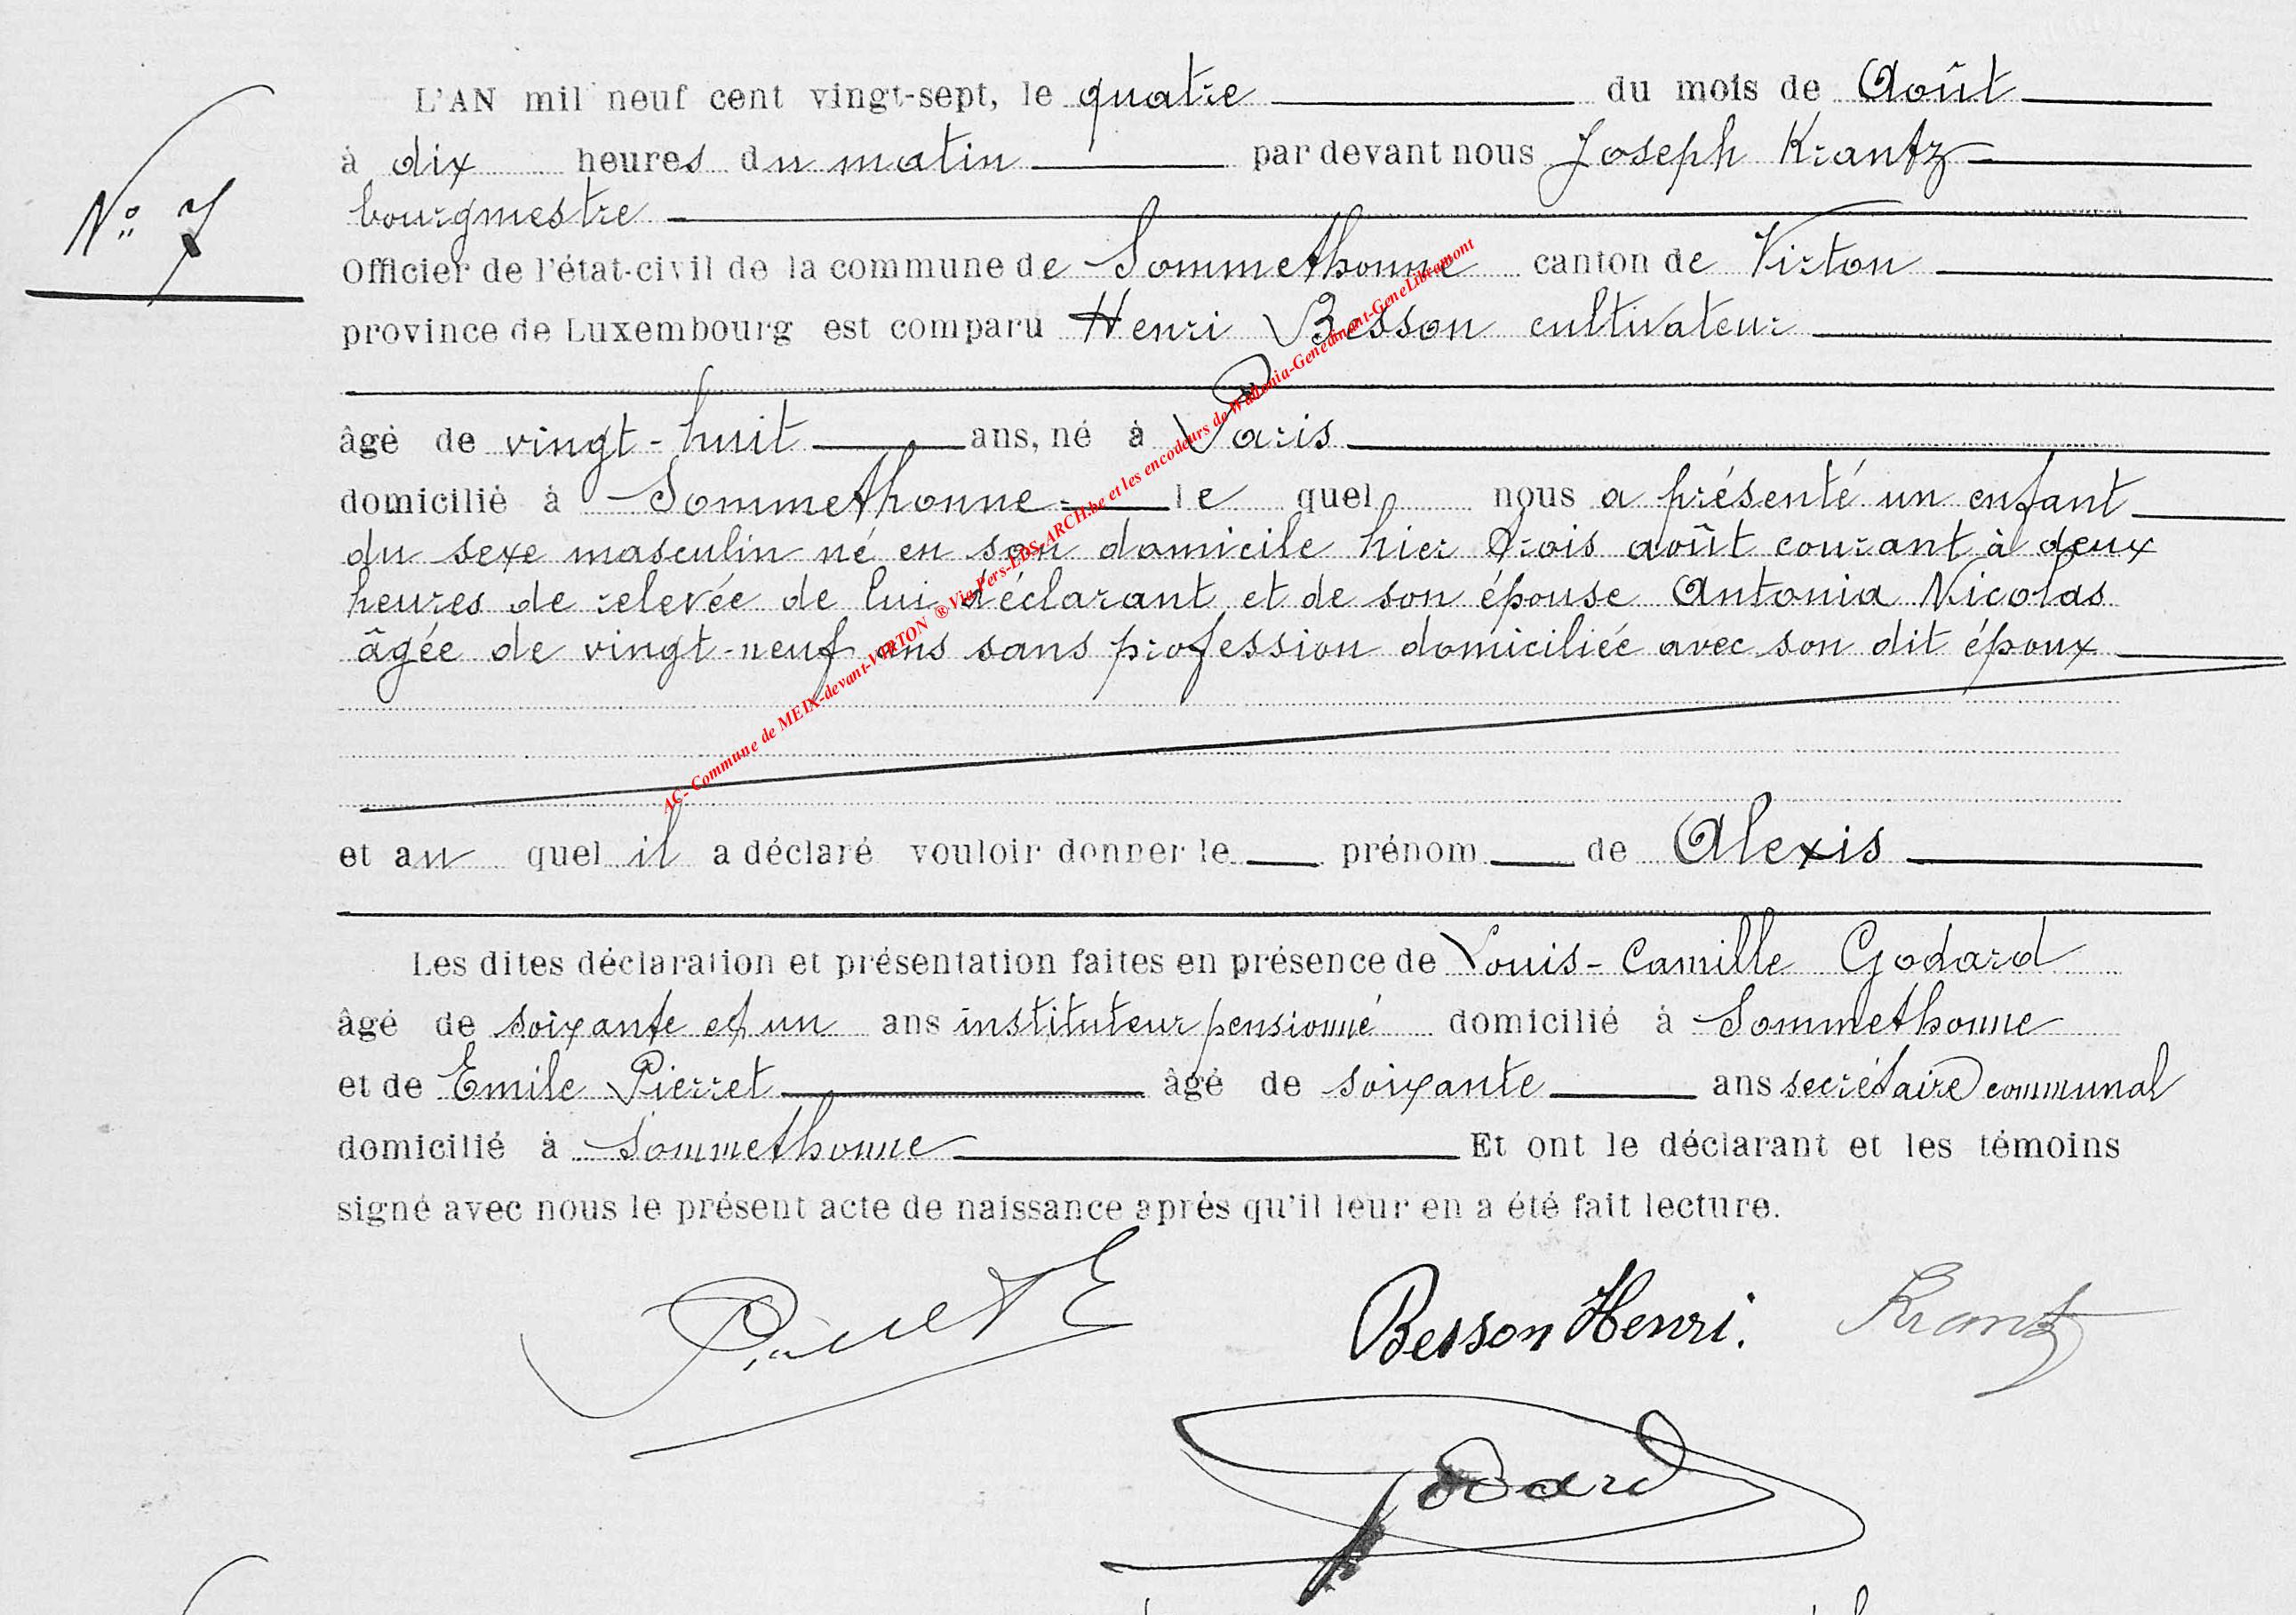 L'AN mil neuf cent vingt-sept, le quatre du mois de Août
à dix heures du matin par devant nous Joseph Krantz
N° 7
bourgmestre
Officier de l'état-civil de la commune de Sommethonne canton de Virton
province de Luxembourg est comparu Henri Besson cultivateur
âgé de vingt-huit ans, né à Paris
domicilié à Sommethonne le quel nous a présenté un enfant
du sexe masculin né en son domicile hier trois août courant à deux
heures de relevée de lui déclarant et de son épouse Antonia Nicolas
âgée de vingt-neuf ans sans profession domiciliée avec son dit époux
AC- Commune de MEIX-devant-VIRTON ® Via Pers-LDS-ARCH.be et les encodeurs de Wallonia-Genedinant-GeneLibramont
et au quel il a déclaré vouloir donner le prénom de Alexis
Les dites déclaration et présentation faites en présence de Louis-Camille Godard
âgé de soixante et un ans instituteur pensionné domicilié à Sommethonne
et de Emile Pierret âgé de soixante ans secrétaire communal
domicilié à Sommethonne Et ont le déclarant et les témoins
signé avec nous le présent acte de naissance après qu'il leur en a été fait lecture.
Pierret E
Besson Henri.
Krantz
Godard